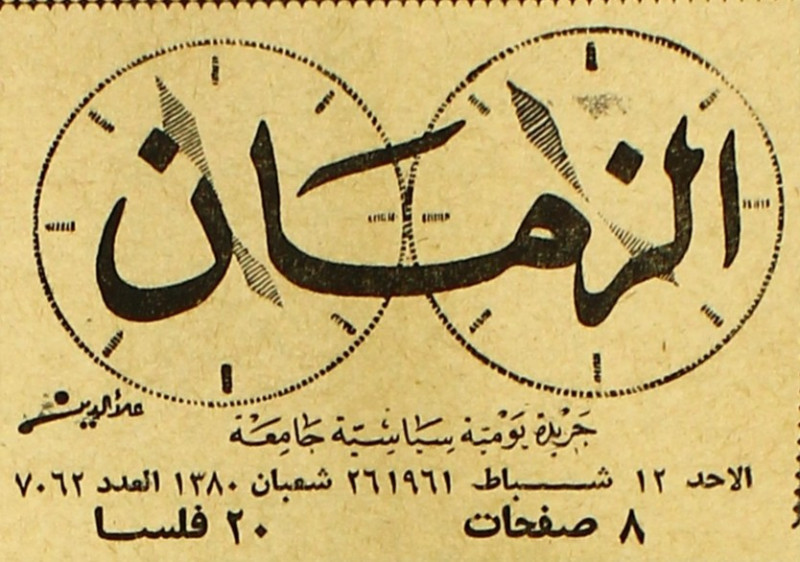 الزمان
علاءالدين
جريدة يومية سياسية جامعة
الاحد ١٢ شباط ١٩٦١ ٢٦ شعبان ١٣٨٠ العدد ٧٠٦٢
٨ صفحات ٢٠ فلسا